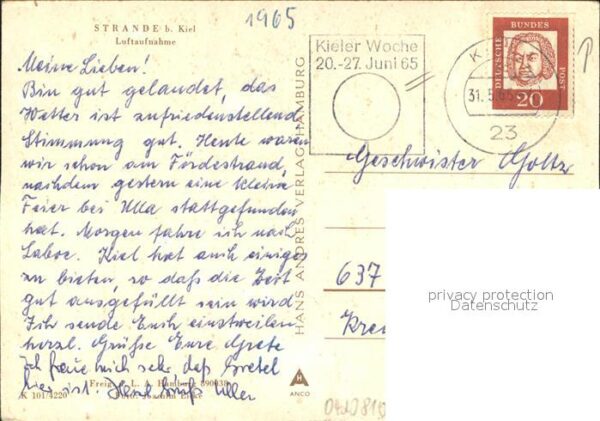 1965
STRANDE b. Kiel
Luftaufnahme
Meine Lieben!
Bin gut gelandet, das
Wetter ist zufriedenstellend
Stimmung gut. Heute waren
wir schon am Fördestrand,
nachdem gestern eine kleine
Feier bei Ulla stattgefunden
hat. Morgen fahre ich nach
Laboe. Kiel hat auch einiges
zu bieten, so daß die Zeit
gut ausgefüllt sein wird
Ich sende Euch einstweilen
herzl. Grüße Eure Grete
ich freue mich sehr, daß Gretel
hier ist. Herzl. Gruß Ulla
Freig. L. A. Hamburg
K 101/4220
HANS ANDRES VERLAG, HAMBURG
ANCO
Kieler Woche
20.-27. Juni 65
31.5.65
23
DEUTSCHE
BUNDES
POST
20
Geschwister Goltz
637
privacy protection
Datenschutz